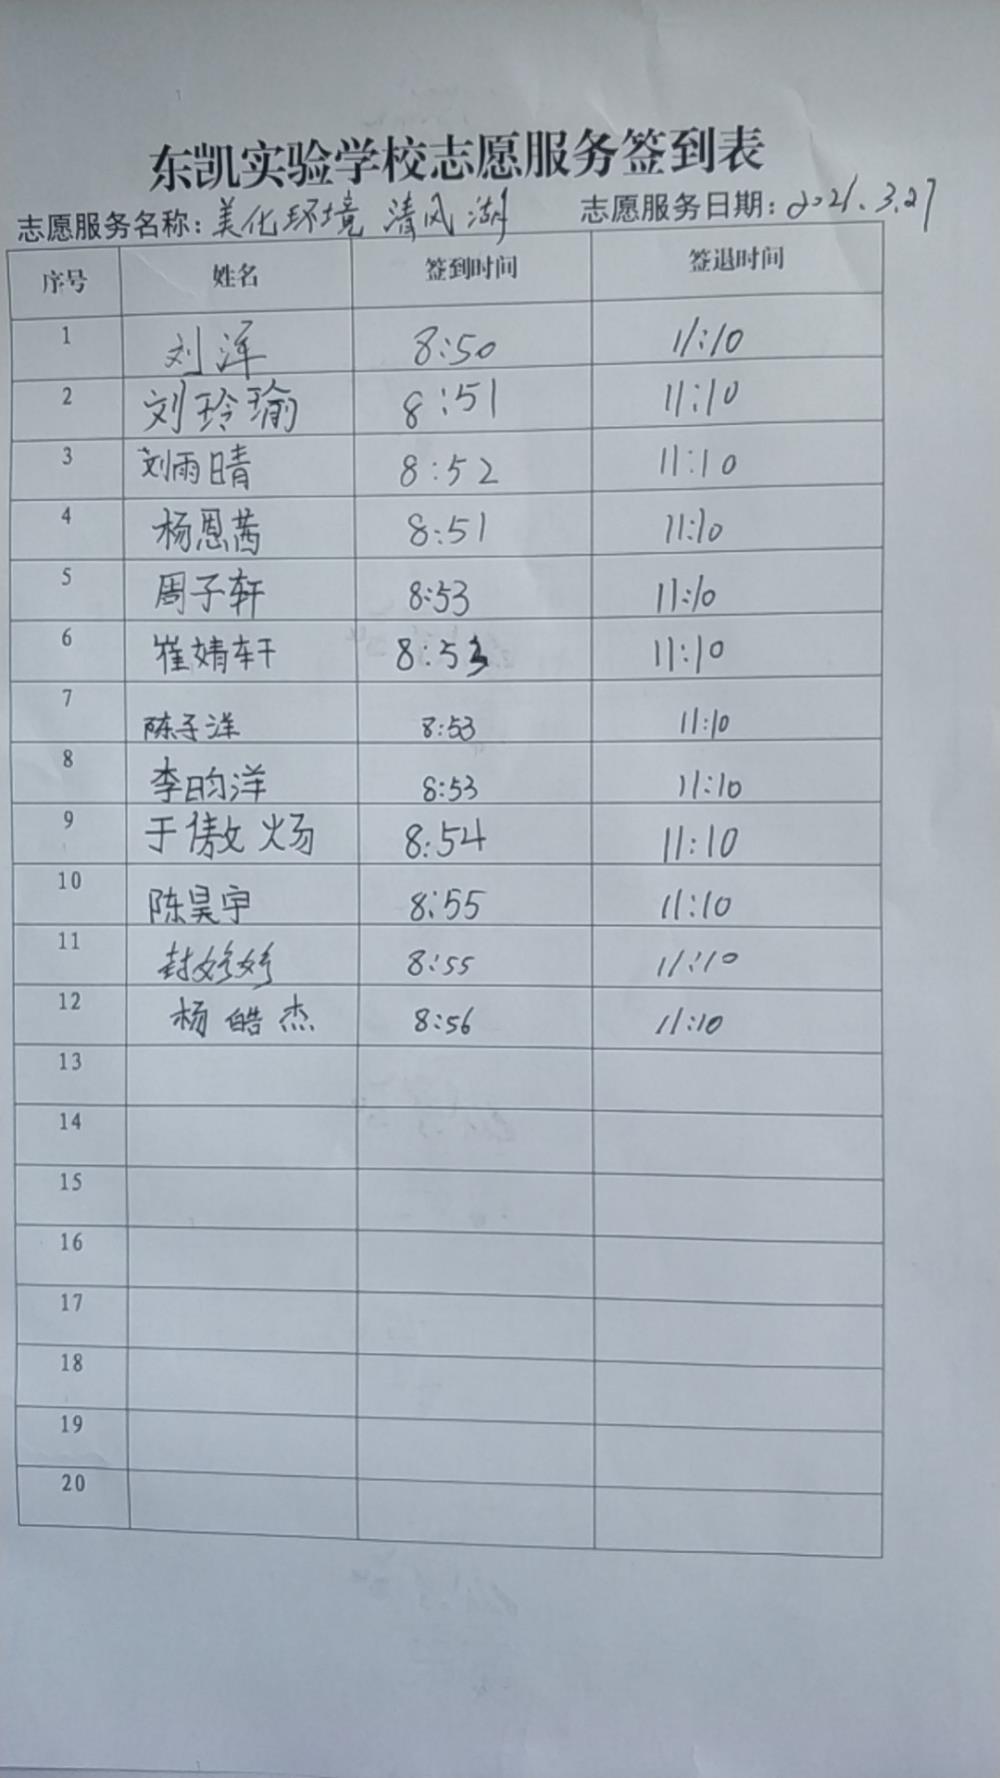 东凯实验学校志愿服务签到表
志愿服务名称：美化环境 清风湖 志愿服务日期：2021.3.27
序号 姓名 签到时间 签退时间
1 刘洋 8:50 11:10
2 刘玲瑜 8:51 11:10
3 刘雨晴 8:52 11:10
4 杨恩茜 8:51 11:10
5 周子轩 8:53 11:10
6 崔婧轩 8:53 11:10
7 陈子洋 8:53 11:10
8 李昀洋 8:53 11:10
9 于傲炀 8:54 11:10
10 陈昊宇 8:55 11:10
11 封姼姼 8:55 11:10
12 杨皓杰 8:56 11:10
13
14
15
16
17
18
19
20